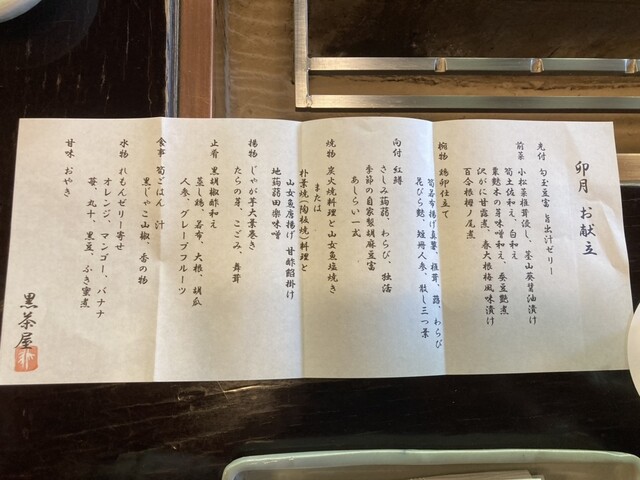 卯月 お献立
先付 勾玉豆富 旨出汁ゼリー
前菜 小松菜椎茸浸し、茎山葵醤油漬け
筍土佐和え、白和え
粟麩木の芽味噌和え、蚕豆艶煮
沢がに甘露煮、春大根梅風味漬け
百合根梅ノ尾煮
椀物 鶏卵仕立て
筍若布揚げ真薯、椎茸、蕗、わらび
花びら麩、短冊人参、散し三つ葉
向付 紅鱒
さしみ蒟蒻、わらび、独活
季節の自家製胡麻豆富
あしらい一式
焼物 炭火焼料理と山女魚塩焼き
または
朴葉焼(陶板焼)料理と
山女魚唐揚げ 甘酢餡掛け
地蒟蒻田楽味噌
揚物 じゃが芋大葉巻き
たらの芽、こごみ、舞茸
止肴 黒胡椒酢和え
蒸し鶏、若布、大根、胡瓜
人参、グレープフルーツ
食事 筍ごはん 汁
黒じゃこ山椒、香の物
水物 れもんゼリー寄せ
オレンジ、マンゴー、バナナ
苺、丸十、黒豆、ふき蜜煮
甘味 おやき
黒茶屋